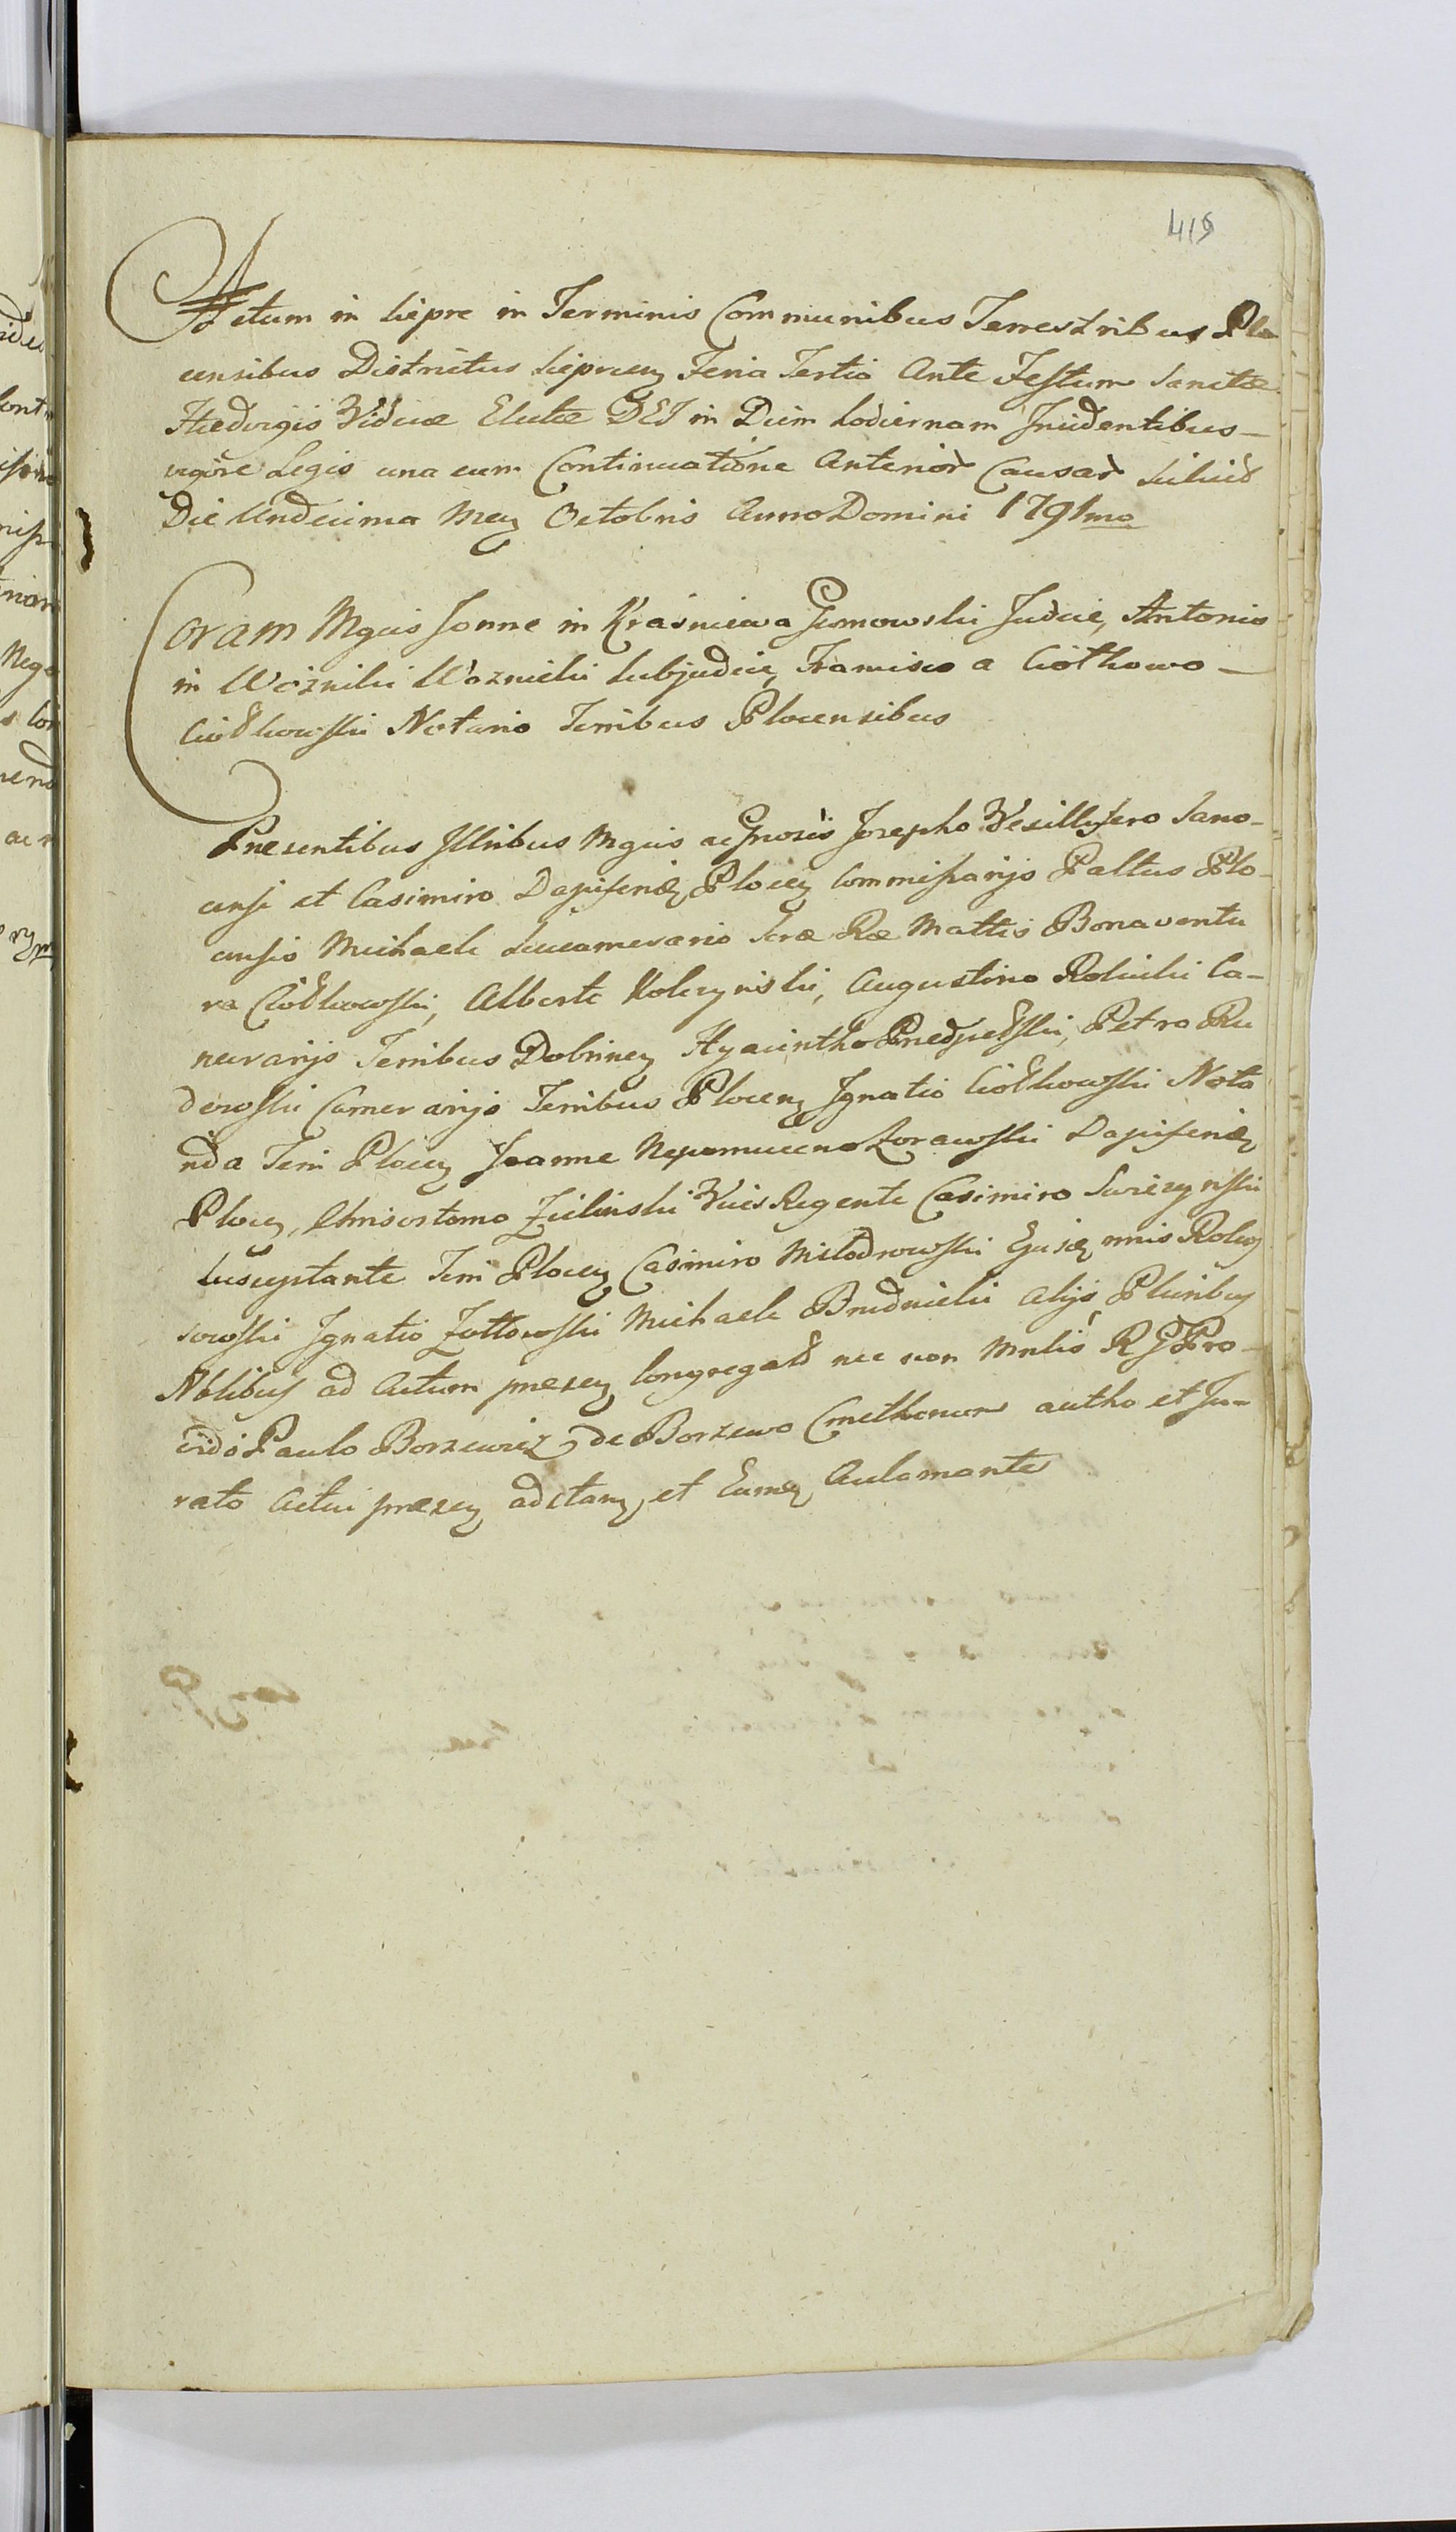 419
Actum in Siepre in Terminis Communibus Terrestribus Plo
censibus Districtus Sieprceny Feria Tertia Ante Festum Sanctæ
Hedvigis Viduæ Electæ DEI in Diem hodiernam Incidentibus –
vigore Legis una cum Continuatione Anterior Causar
Die Undecima Mey Octobris Anno Domini 1791mo
Coram Mgcis Jonne in Kraśniewa Gumowski Judice, Antonio
in Woźniki Woznicki Subjudice, Francisco a Ciołkowo –
Ciołkowski Notario Terribus Plocensibus
Presentibus Illribus Mgcis ac Gnosis Josepho Vexillifero Sano-
censi et Casimiro Dapiferidę Plocen Commissarijs Paltus Plo-
censis Michaele Succamerario Sræ Ræ Mattis Bonaventu
ra Ciołkowski, Alberto Kolczynski, Augustino Rokicki Ca-
merarijs Terribus Dobrinen Hyacintho Przedpełski, Petro Ru
dowski Camerarijs Terribus Plocen Ignatio Ciołkowski Nota
rida Terri Plocen Joanne Nepomuceno Zorawski Dapiferidę
Plocen, Chrisostomo Zielinski Vices Regente Casimiro Swiezynski
Susceptante Terri Plocen Casimiro Miłodrowski Ejusdę
sowski Ignatio Zołtowski Michaele Brudnicki Alijs Pluribus
Nblibus ad Actum præsen Congregatis nec non Mnlis R G Pro-
vido Paulo Borzewicz de Borzewo Cmethonum autho et Ju-
rato Actui præsen adstan, et Eumdę Aclamante